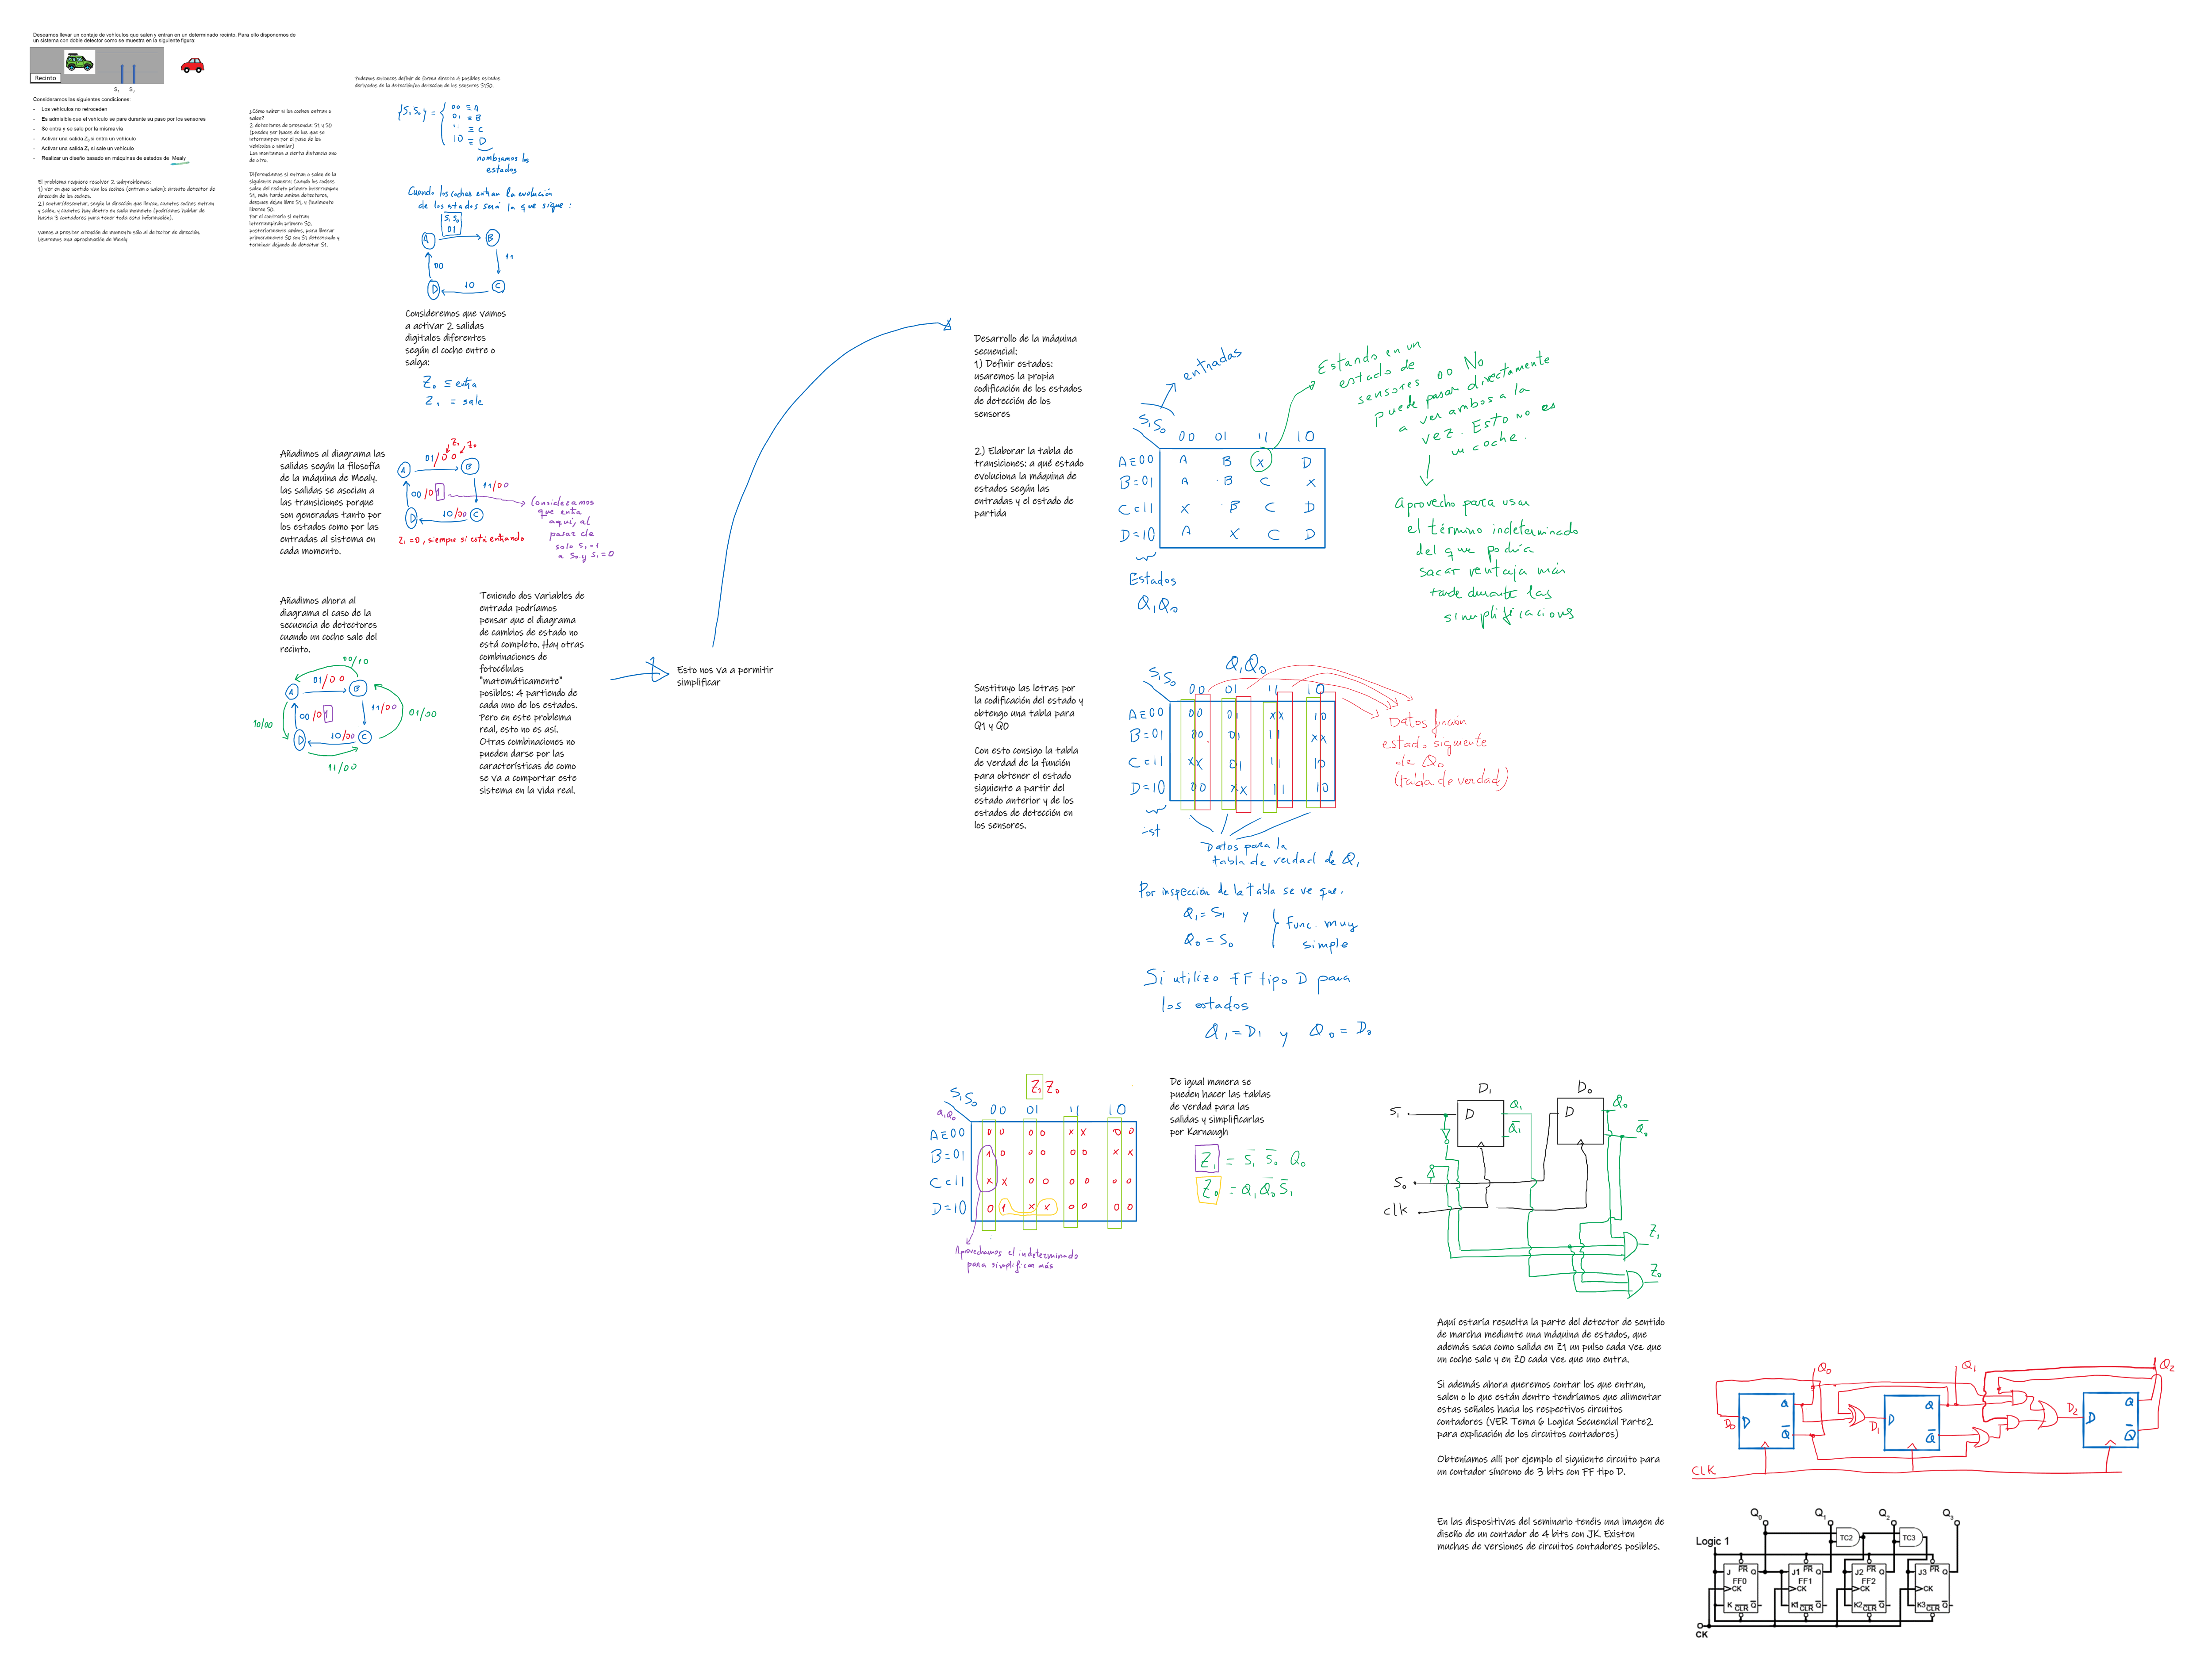 Deseamos llevar un contaje de vehículos que salen y entran en un determinado recinto. Para ello disponemos de
un sistema con doble detector como se muestra en la siguiente figura:
Recinto
S₁ S₀
Consideramos las siguientes condiciones:
- Los vehículos no retroceden
- Es admisible que el vehículo se pare durante su paso por los sensores
- Se entra y se sale por la misma vía
- Activar una salida Z₀ si entra un vehículo
- Activar una salida Z₁ si sale un vehículo
- Realizar un diseño basado en máquinas de estados de Mealy
El problema requiere resolver 2 subproblemas:
1) ver en que sentido van los coches (entran o salen): circuito detector de
dirección de los coches.
2) contar/descontar, según la dirección que lleven, cuantos coches entran
y salen, y cuantos hay dentro en cada momento (podríamos hablar de
hasta 3 contadores para tener toda esta información).
Vamos a prestar atención de momento sólo al detector de dirección.
Usaremos una aproximación de Mealy
¿Cómo saber si los coches entran o
salen?
2 detectores de presencia: S1 y S0
(pueden ser haces de luz que se
interrumpen por el paso de los
vehículos o similar)
Los montamos a cierta distancia uno
de otro.
Diferenciamos si entran o salen de la
siguiente manera: Cuando los coches
salen del recinto primero interrumpen
S1, más tarde ambos detectores,
despues dejan libre S1, y finalmente
liberan S0.
Por el contrario si entran
interrumpirán primero S0,
posteriormente ambos, para liberar
primeramente S0 con S1 detectando y
terminar dejando de detectar S1.
Podemos entonces definir de forma directa 4 posibles estados
derivados de la detección/no deteccion de los sensores S1S0.
{S₁S₀} = {
00 ≡ A
01 ≡ B
11 ≡ C
10 ≡ D
nombramos los
estados
Cuando los coches entran la evolución
de los estados será la que sigue:
S₁S₀
01
A B
00 11
D 10 C
Consideremos que vamos
a activar 2 salidas
digitales diferentes
según el coche entre o
salga:
Z₀ ≡ entra
Z₁ = sale
Añadimos al diagrama las
salidas según la filosofía
de la máquina de Mealy.
las salidas se asocian a
las transiciones porque
son generadas tanto por
los estados como por las
entradas al sistema en
cada momento.
Z₁ Z₀
01/00
A B
00/01 11/00
D 10/00 C
Z₁=0, siempre si está entrando
Consideramos
que entra
aquí, al
pasar de
solo S₁=1
a S₀ y S₁=0
Añadimos ahora al
diagrama el caso de la
secuencia de detectores
cuando un coche sale del
recinto.
00/10
01/00
A B
10/00 00/01 11/00 01/00
D 10/00 C
11/00
Teniendo dos variables de
entrada podríamos
pensar que el diagrama
de cambios de estado no
está completo. Hay otras
combinaciones de
fotocélulas
"matemáticamente"
posibles: 4 partiendo de
cada uno de los estados.
Pero en este problema
real, esto no es así.
Otras combinaciones no
pueden darse por las
características de como
se va a comportar este
sistema en la vida real.
Esto nos va a permitir
simplificar
Desarrollo de la máquina
secuencial:
1) Definir estados:
usaremos la propia
codificación de los estados
de detección de los
sensores
2) Elaborar la tabla de
transiciones: a qué estado
evoluciona la máquina de
estados según las
entradas y el estado de
partida
entradas
S₁S₀
00 01 11 10
A≡00 A B X D
B=01 A B C X
C=11 X B C D
D=10 A X C D
Estados
Q₁Q₀
Estando en un
estado de
sensores 00 No
puede pasar directamente
a ver ambos a la
vez. Esto no es
un coche.
Aprovecho para usar
el término indeterminado
del que podría
sacar ventaja más
tarde durante las
simplificaciones
Sustituyo las letras por
la codificación del estado y
obtengo una tabla para
Q1 y Q0
Con esto consigo la tabla
de verdad de la función
para obtener el estado
siguiente a partir del
estado anterior y de los
estados de detección en
los sensores.
Q₁Q₀
S₁S₀
00 01 11 10
A≡00 00 01 xx 10
B=01 00 01 11 xx
C=11 xx 01 11 10
D=10 00 xx 11 10
Datos función
estado siguiente
de Q₀
(tabla de verdad)
Datos para la
tabla de verdad de Q₁
Por inspección de la tabla se ve que.
Q₁=S₁ y
Q₀=S₀
Func. muy
simple
Si utilizo FF tipo D para
los estados
Q₁=D₁ y Q₀=D₀
Z₁Z₀
S₁S₀
Q₁Q₀
00 01 11 10
A≡00 00 00 xx 00
B=01 10 00 00 xx
C=11 xx 00 00 00
D=10 01 xx 00 00
Aprovechamos el indeterminado
para simplificar más
De igual manera se
pueden hacer las tablas
de verdad para las
salidas y simplificarlas
por Karnaugh
Z₁ = S̅₁ S̅₀ Q₀
Z₀ = Q₁Q̅₀S̅₁
D₁ D₀
S₁ D Q₁ Q̅₁ D Q₀ Q̅₀
S₀
clk
Z₁
Z₀
Aquí estaría resuelta la parte del detector de sentido
de marcha mediante una máquina de estados, que
además saca como salida en Z1 un pulso cada vez que
un coche sale y en Z0 cada vez que uno entra.
Si además ahora queremos contar los que entran,
salen o lo que están dentro tendríamos que alimentar
estas señales hacia los respectivos circuitos
contadores (VER Tema 6 Logica Secuencial Parte2
para explicación de los circuitos contadores)
Obteníamos allí por ejemplo el siguiente circuito para
un contador síncrono de 3 bits con FF tipo D.
Q₀ Q₁ Q₂
D₀ D Q Q̅ D₁ D Q Q̅ D₂ D Q Q̅
CLK
En las dispositivas del seminario tenéis una imagen de
diseño de un contador de 4 bits con JK. Existen
muchas de versiones de circuitos contadores posibles.
Q₀ Q₁ Q₂ Q₃
TC2 TC3
Logic 1
J PR Q J1 PR Q J2 PR Q J3 PR Q
FF0 FF1 FF2
CK CK CK CK
K CLR Q̅ K1 CLR Q̅ K2 CLR Q̅ K3 CLR Q̅
CK